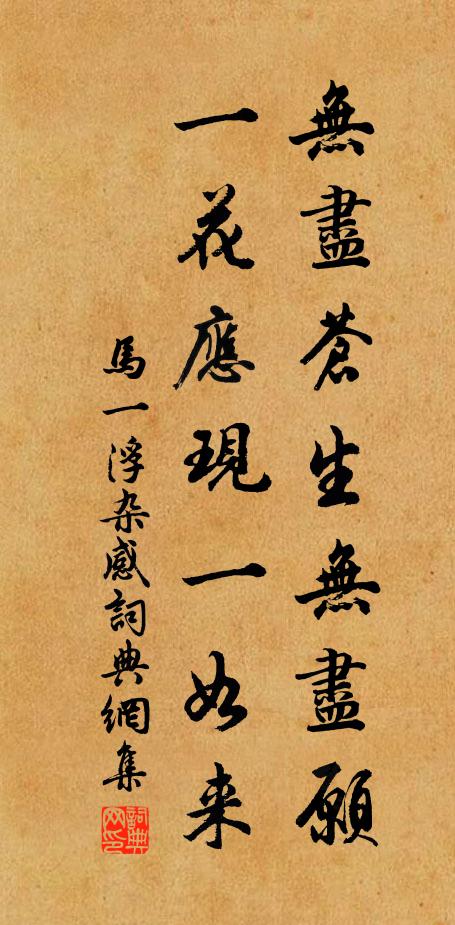 無盡蒼生無盡願
一花應現一如来
馬一浮杂感詞典網集
詞典
网印